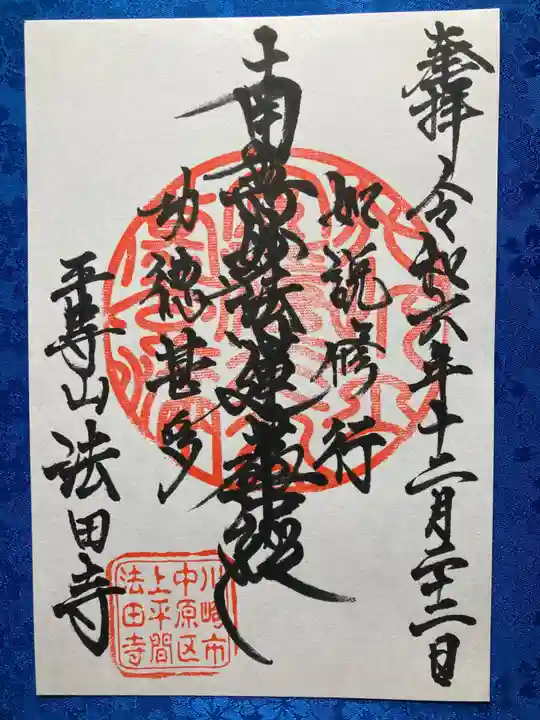 奉拝
令和六年十二月二十二日
如説修行
南無妙法蓮華経
功徳甚多
平尊山法田寺
川崎市
中原区
上平間
法田寺